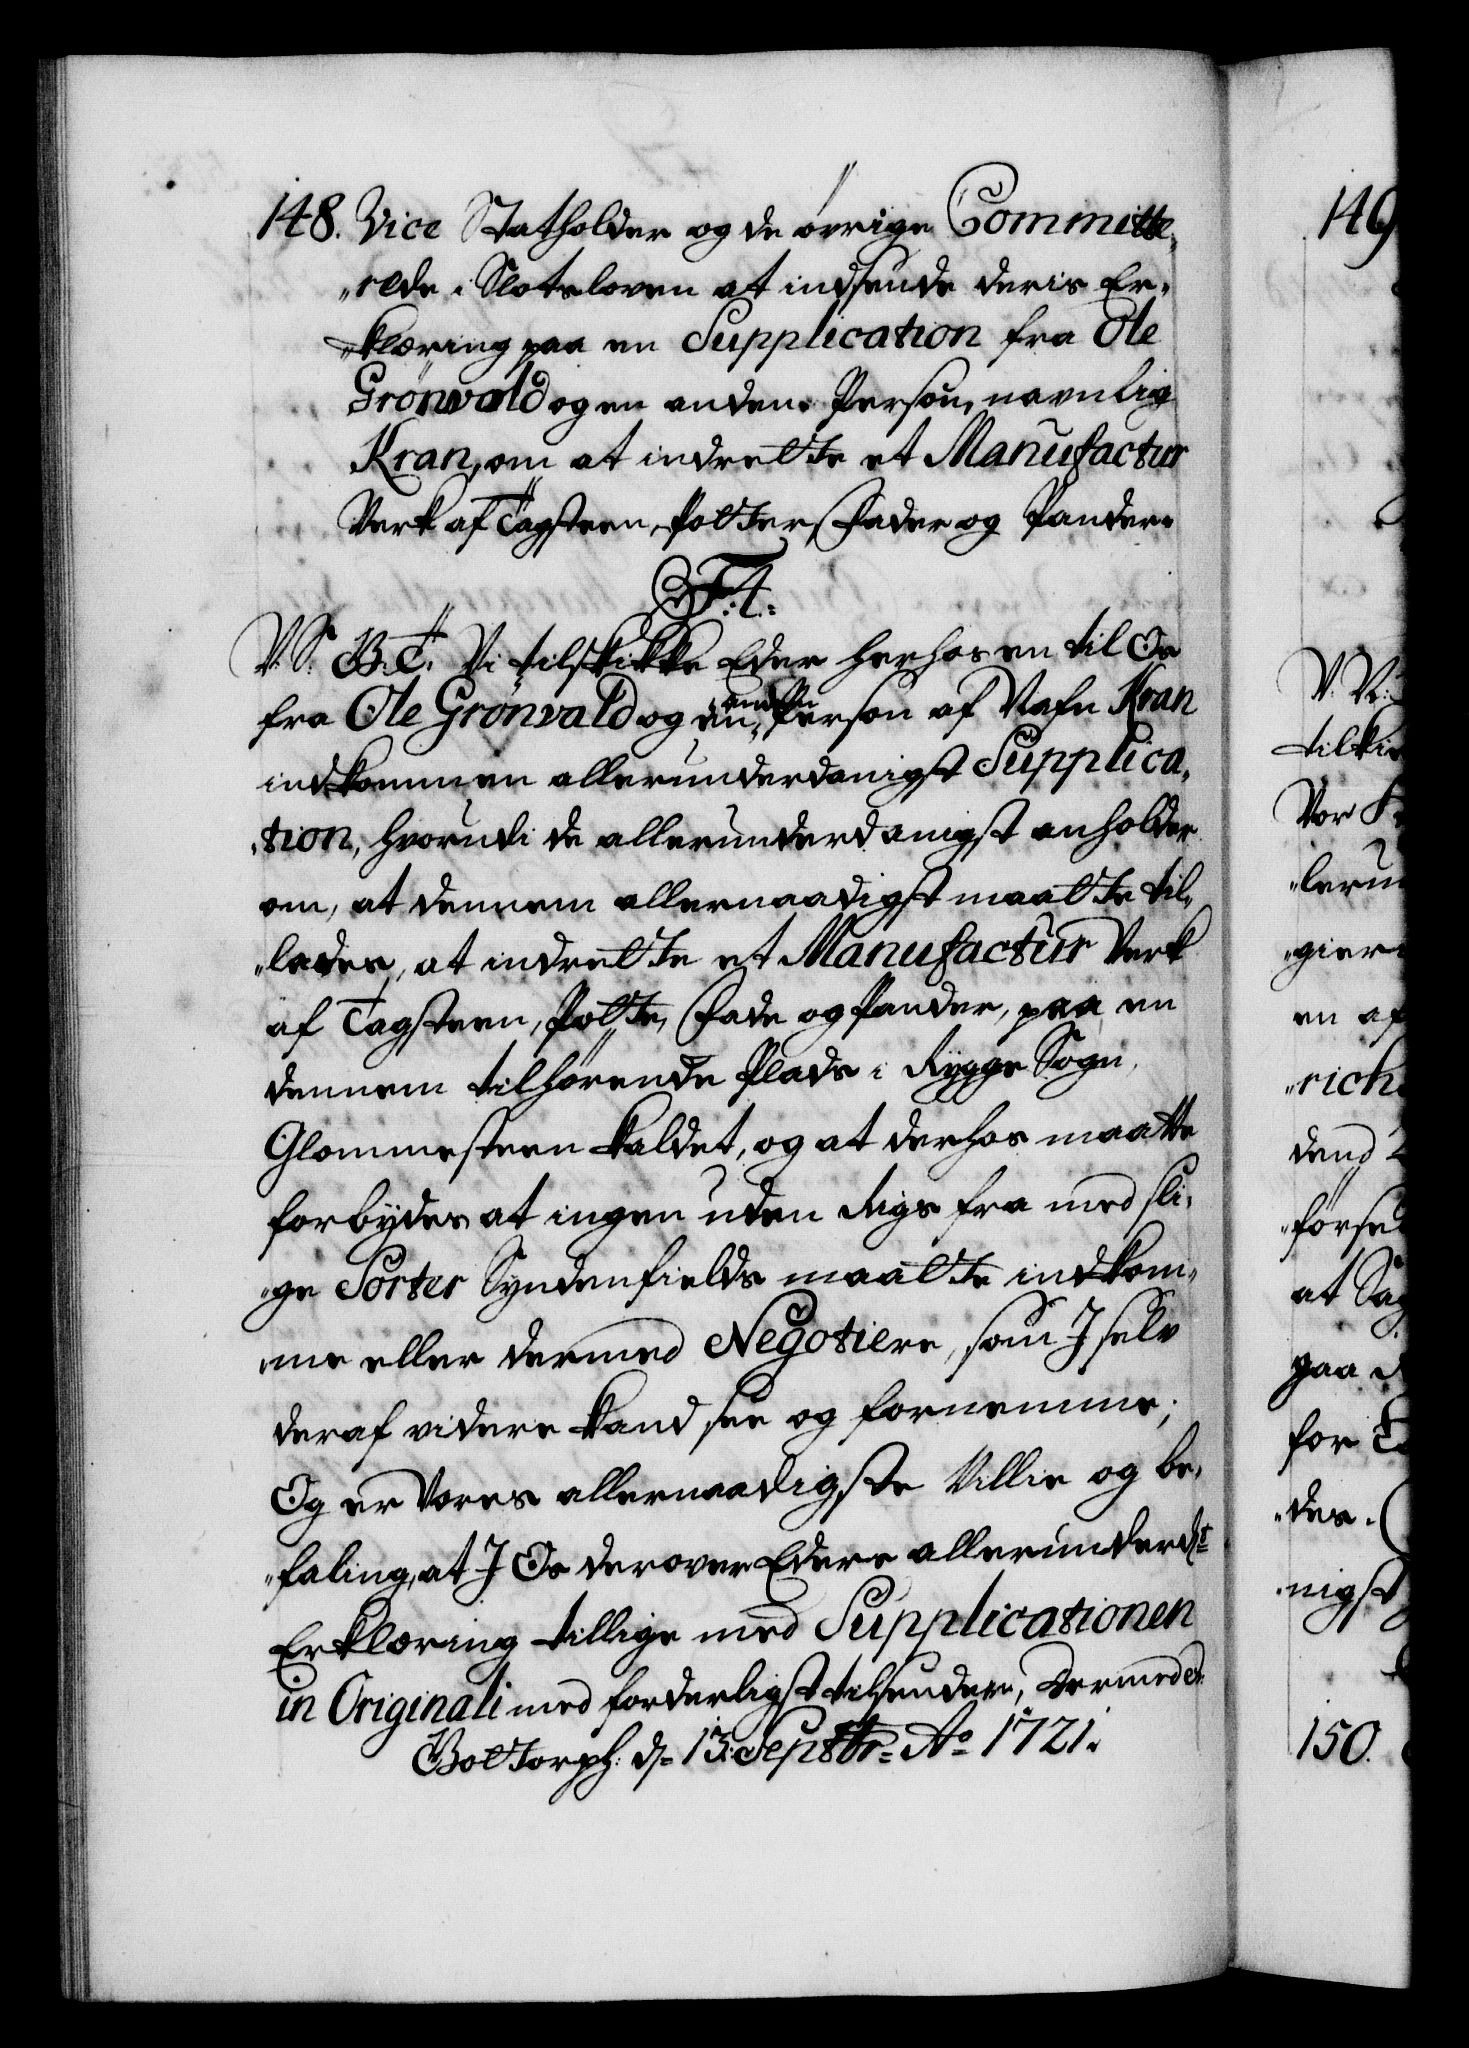 148. Vice Statholder og de øvrige Committe,
„rede i Slotsloven at indsende deris Er„
„klæring paa en Supplication fra Ole
Grønvald og en anden Person, navnlig
Kran, om at indrette et Manufactur
Verk af Tagsteen, Potter, Fader og Pander.
F. 4.
V. S. B. T. Vi tilskikke Eder herhos en til Os
fra Ole Grønvald og en anden Person af Nafn Kran
indkommen allerunderdanigst Supplica„
„tion, hvorudi de allerunderdanigst anholder
om, at dennem allernaadigst maatte til„
„lades, at indrette et Manufactur Verk
af Tagsteen, Potte, Fade og Pander, paa en
dennem tilhørende Plads i Rygge Sogn,
Glommesteen kaldet, og at derhos maatte
forbydes at ingen uden Rigs fra med sli„
„ge Sorter Syndenfields maatte indkom„
„me eller dermed Negotiere, som I selv
deraf videre kand see og fornemme;
Og er Vores allernaadigste Villie og be„
„faling, at I Os derover Eders allerunderdst
Erklæring tillige med Supplicationen
in Originali med forderligst tilsender, Dermed etc.
Gottorph: d. 13: Septbr. Ao 1721.
149
V. V.
tilkie
Vor
„leru
„gier
en af
„rich
dend
„førse
at Sag
paa
for
„des.
„nigst
150.